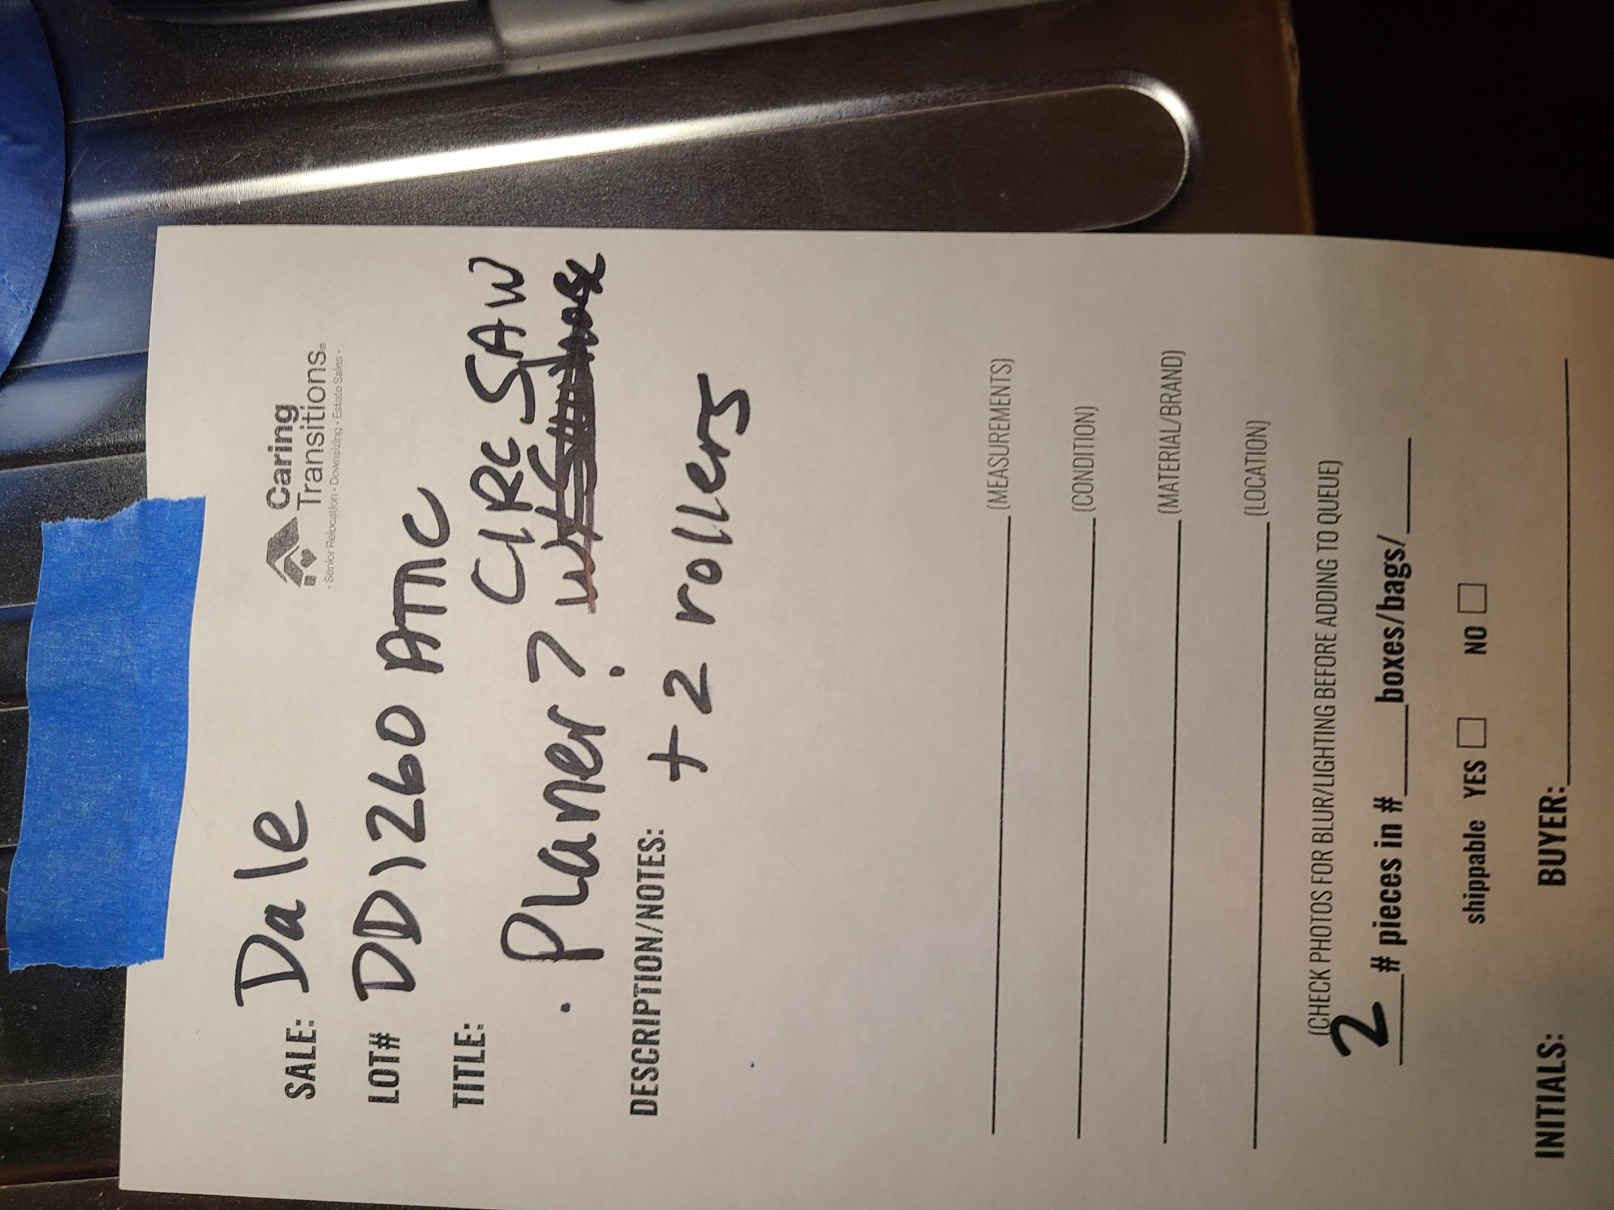 Caring
Transitions®
• Senior Relocation • Downsizing • Estate Sales •
SALE: Dale
LOT# DD1260 ATTIC
TITLE:
CIRC SAW
. Planer ?
DESCRIPTION/NOTES:
+ 2 rollers
(MEASUREMENTS)
(CONDITION)
(MATERIAL/BRAND)
(LOCATION)
(CHECK PHOTOS FOR BLUR/LIGHTING BEFORE ADDING TO QUEUE)
2 # pieces in # boxes/bags/
shippable YES NO
INITIALS: BUYER: